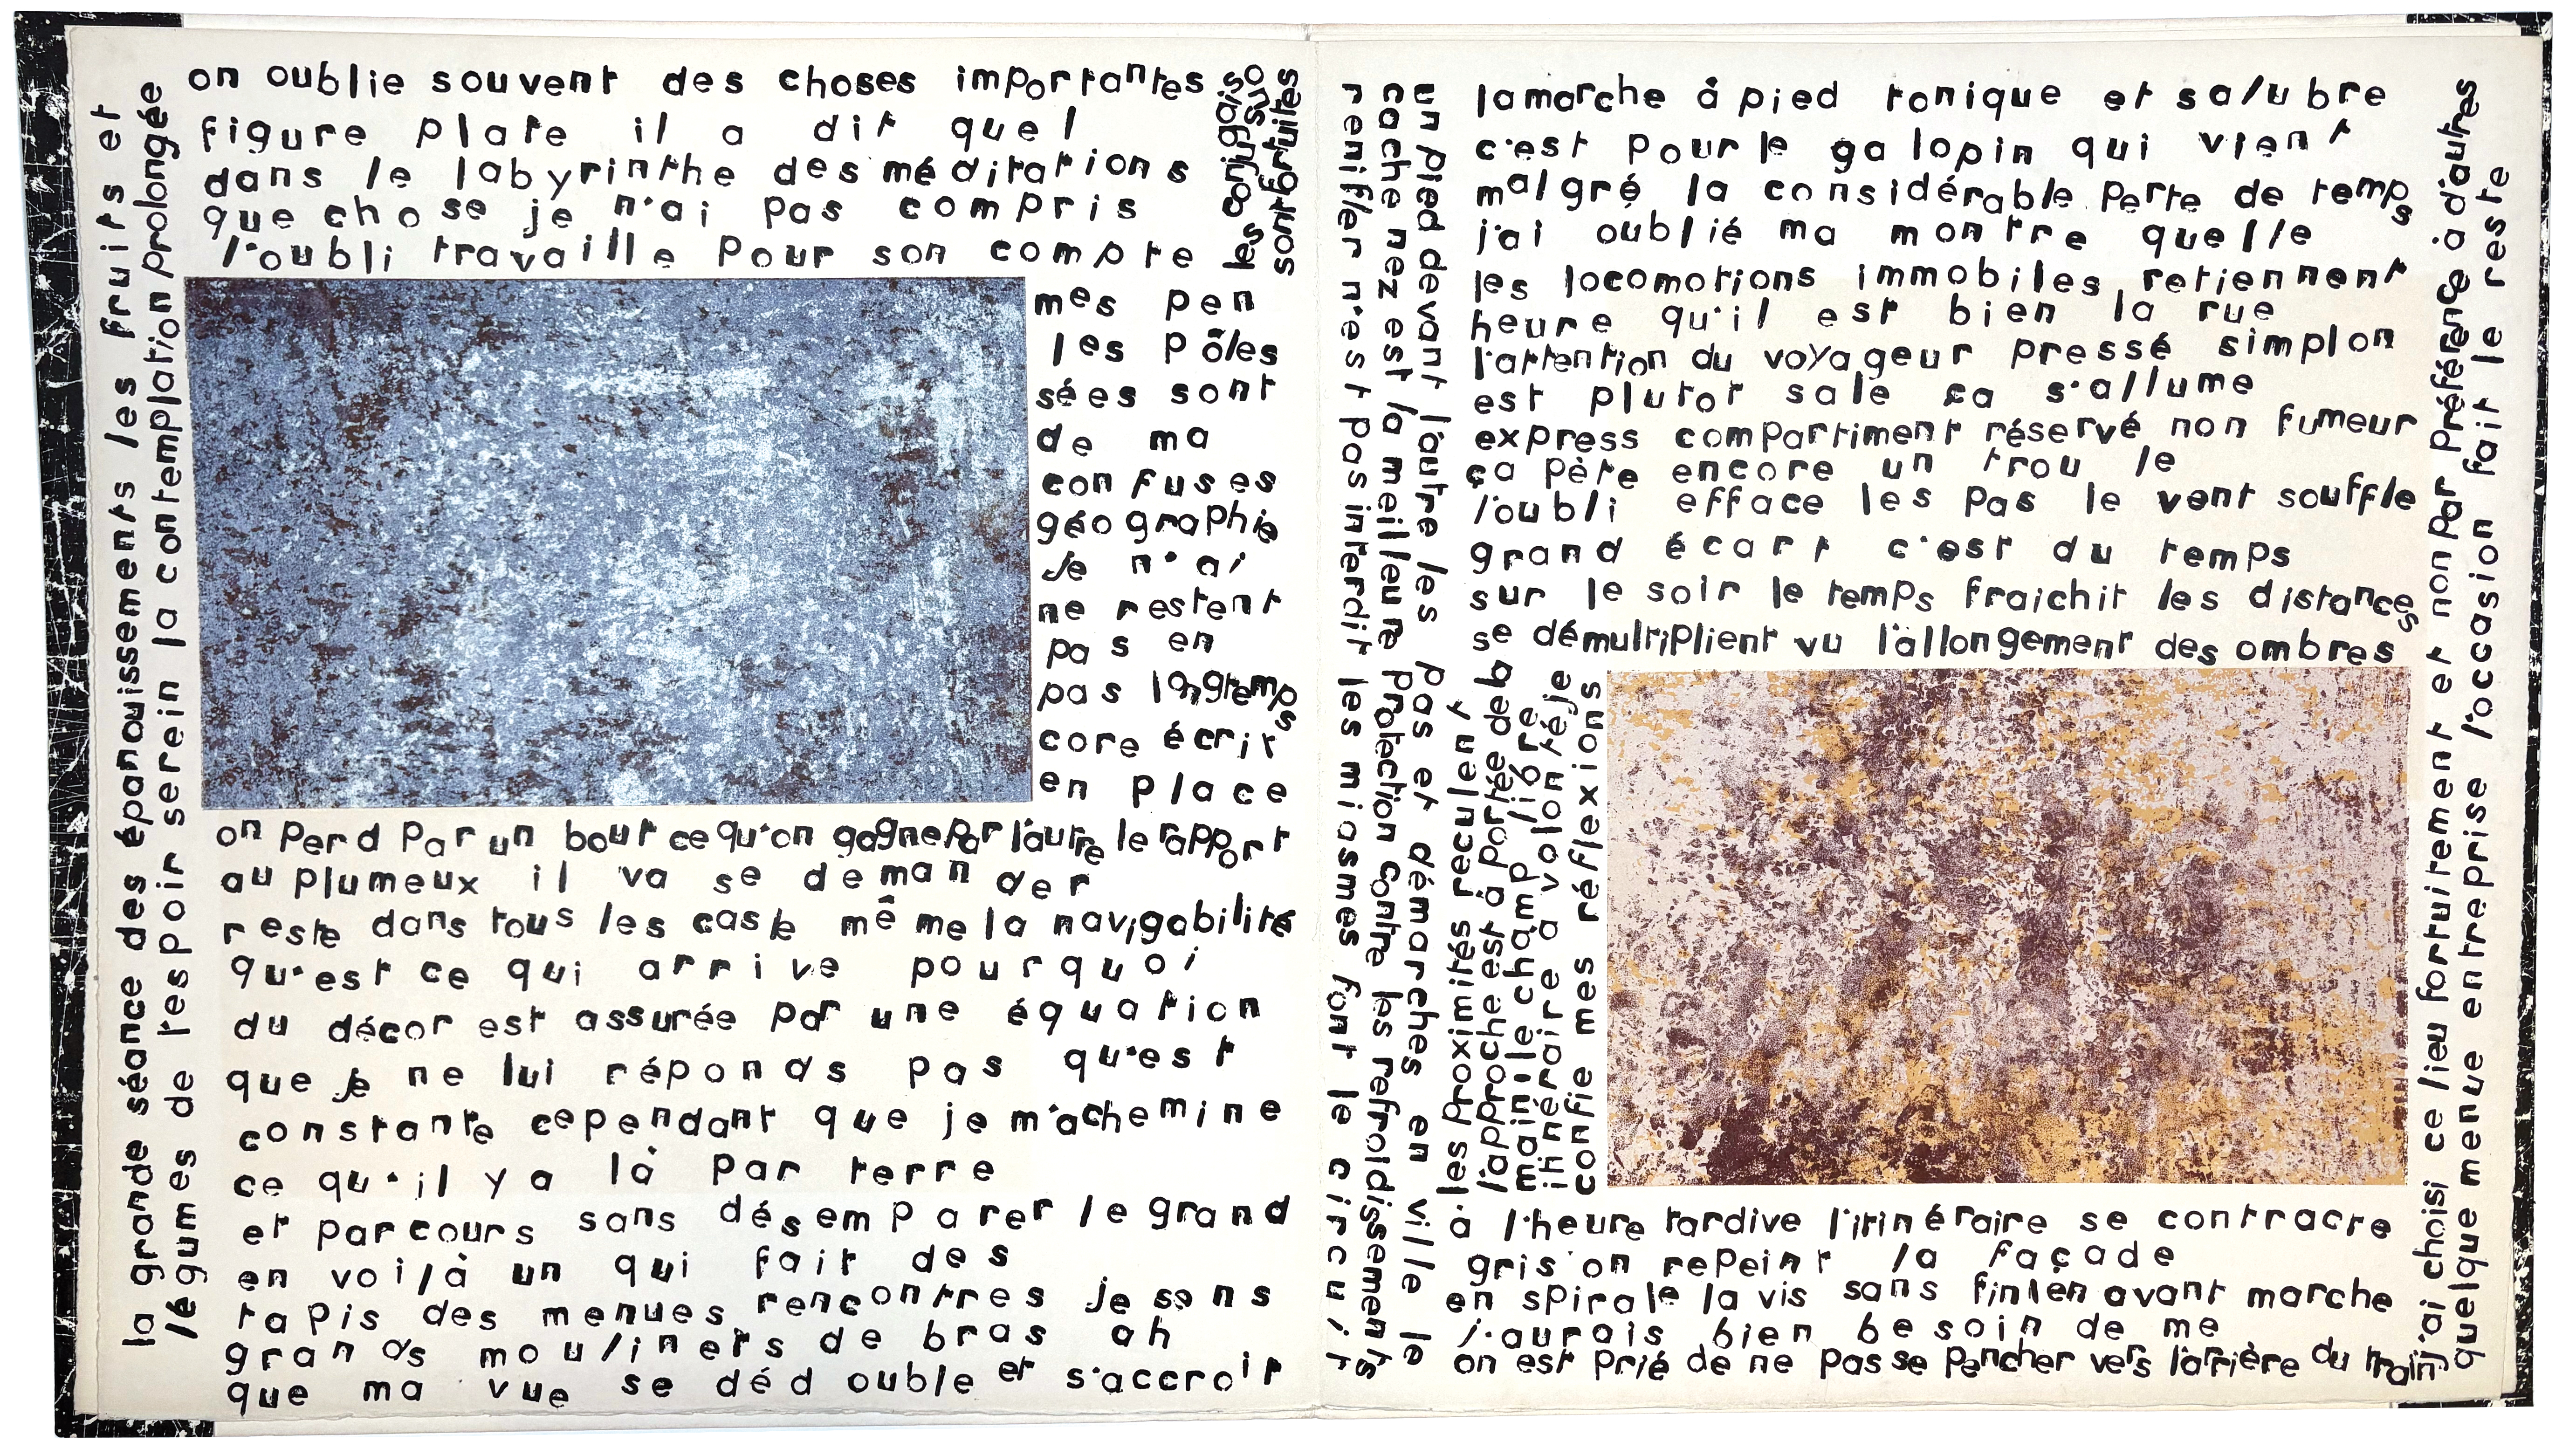 la grande séance des épanouissements les fruits et
légumes de l'espoir serein la contemplation prolongée
on oublie souvent des choses importantes
figure plate il a dit quel
dans le labyrinthe des méditations
que chose je n'ai pas compris
l'oubli travaille pour son compte
les conjugaisons
sont fortuites
mes pen
les pôles
sées sont
de ma
confuses
géographie
je n'ai
ne restent
pas en
pas longtemps
core écrit
en place
on perd par un bout ce qu'on gagne par l'autre le rapport
au plumeux il va se demander
reste dans tous les cas le même la navigabilité
qu'est ce qui arrive pourquoi
du décor est assurée par une équation
que je ne lui réponds pas qu'est
constante cependant que je m'achemine
ce qu'il y a là par terre
et parcours sans désemparer le grand
en voilà un qui fait des
tapis des menues rencontres je sens
grands moulinets de bras ah
que ma vue se dédouble et s'accroit
un pied devant l'autre les pas et démarches en ville le
cache nez est la meilleure protection contre les refroidissements
renifler n'est pas interdit les miasmes font le circuit
la marche à pied tonique et salubre
c'est pour le galopin qui vient
malgré la considérable perte de temps
j'ai oublié ma montre quelle
les locomotions immobiles retiennent
heure qu'il est bien la rue
l'attention du voyageur pressé simplon
est plutot sale ça s'allume
express compartiment réservé non fumeur
ça pète encore un trou le
l'oubli efface les pas le vent souffle
grand écart c'est du temps
sur le soir le temps fraichit les distances
se démultiplient vu l'allongement des ombres
les proximités reculent
l'approche est à portée de la
main le champ libre
itinéraire a volonté je
confie mes réflexions
à l'heure tardive l'itinéraire se contracte
gris on repeint la façade
en spirale la vis sans fin l'en avant marche
j'aurais bien besoin de me
on est prié de ne pas se pencher vers l'arrière du train
j'ai choisi ce lieu fortuitement et non par préférence à d'autres
quelque menue entreprise l'occasion fait le reste